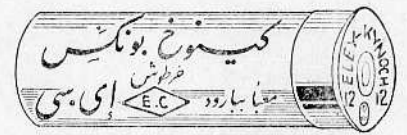 كينوخ بونكس
خرطوش
معبأ ببارود E.C إي سي
ELEX-KYNOCH
12 12